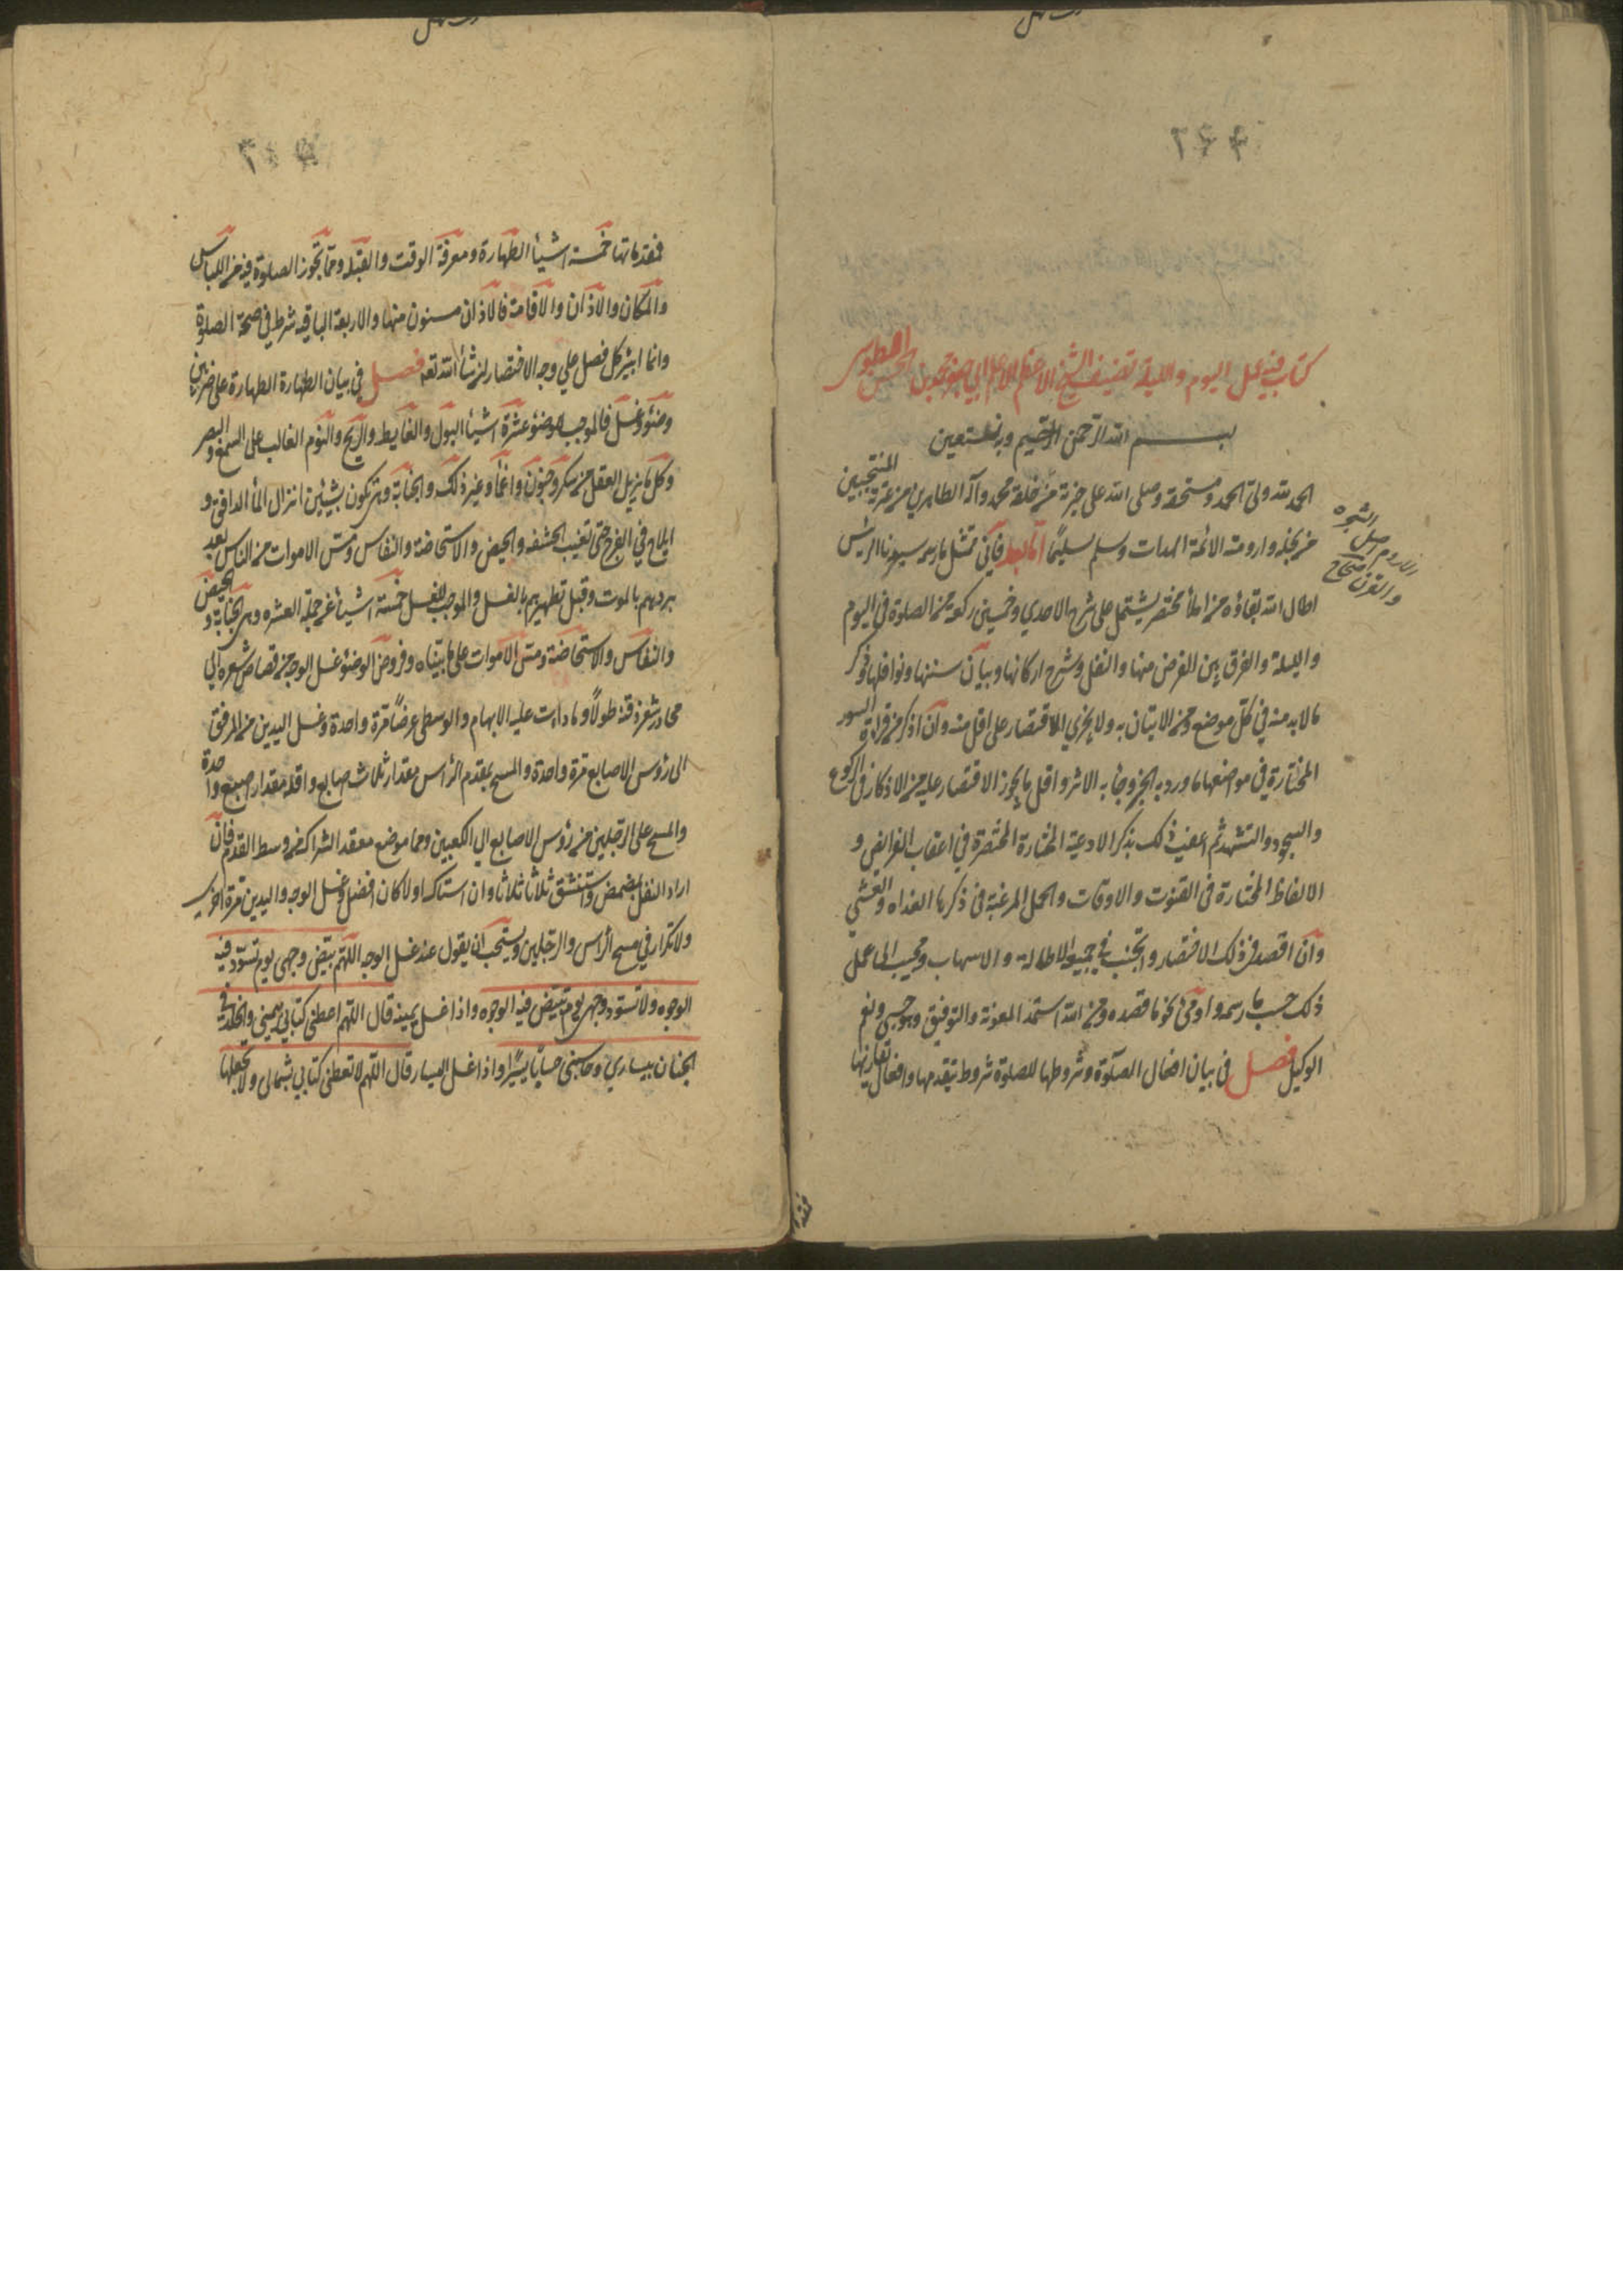 كتاب فيه عمل اليوم والليلة تصنيف الشيخ الاعظم الاعلم ابي جعفر محمد بن الحسن الطوسي
بسم الله الرحمن الرحيم وبه نستعين
الحمد لله ولي الحمد ومستحقه وصلى الله على خيرته من خلقه محمد وآله الطاهرين من عترته المنتجبين
من نجله وارومته الائمة الهداة وسلم تسليما اما بعد فاني ممتثل ما رسمه سيدنا الرئيس
اطال الله بقاؤه من املأ مختصر يشتمل على شرح الاحدي وخمسين ركعة من الصلوة في اليوم
والليلة والفرق بين الفرض منها والنفل وشرح اركانها وبيان سننها ونوافلها وذكر
ما لا بد منه في كل موضع ومن الاتيان به ولا يجزي الاقتصار على اقل منه وان اذكر من قراة السور
المختارة في مواضعها ما ورد به الخبر وجأ به الاثر واقل ما يجوز الاقتصار عليه من الاذكار في الركوع
والسجود والتشهد ثم اعقب ذلك بذكر الادعية المختارة المختصرة في اعقاب الفرائض و
الالفاظ المختارة في القنوت والاوقات والحمل المرغبة في ذكرها الغداه والعشي
وان اقصد في ذلك الاختصار واتجنب في جميعه الاطالة والاسهاب ومجيب الى عمل
ذلك حسب ما رسمه واومي نحو ما قصده ومن الله استمد المعونة والتوفيق وهو حسبي ونعم
الوكيل فصل في بيان افعال الصلوة وشروطها للصلوة شروط تتقدمها وافعال تقارنها
الاروم اصل الشجرة
والقرن صحاح
فمقدماتها خمسة اشيأ الطهارة ومعرفة الوقت والقبلة وما تجوز الصلوة فيه من اللباس
والمكان والاذان والاقامة فالاذان مسنون منها والاربعة الباقيه شرط في صحة الصلوة
وانا ابين كل فصل علي وجه الاختصار ان شأ الله تعه فصل في بيان الطهارة الطهارة على ضربين
وضؤ وغسل فالموجب للوضؤ عشرة اشيأ البول والغايط والريح والنوم الغالب على السمع والبصر
وكل ما يزيل العقل من سكر وجنون واغمأ وغير ذلك والجنابة وهي تكون بشيئين انزال المأ الدافق و
ايلاج في الفرج حتى تغيب الحشفه والحيض والاستحاضة والنفاس ومس الاموات من الناس بعد
بردهم بالموت وقبل تطهيرهم بالغسل والموجب للغسل خمسة اشيأ من جملة العشره وهي الجنابة والحيض
والنفاس والاستحاضة ومس الاموات على ما بيناه وفروض الوضؤ غسل الوجه من قصاص شعره الي
محادر شعر ذقنه طولا وما دارت عليه الابهام والوسطى عرضا مرة واحدة وغسل اليدين من المرفق
الى رؤس الاصابع مرة واحدة والمسح بمقدم الرأس مقدار ثلاث اصابع واقله مقدار اصبع واحدة
والمسح على الرجلين من رؤس الاصابع الي الكعبين وهما موضع معقد الشراك من وسط القدم فان
اراد النفل تمضمض واستنشق ثلاثا ثلاثا وان استاك اولا كان افضل وغسل الوجه واليدين مرة اخرى
ولا تكرار في مسح الرأس والرجلين ويستحب ان يقول عند غسل الوجه اللهم بيض وجهى يوم تسود فيه
الوجوه ولا تسود وجهى يوم تبيض فيه الوجوه واذا غسل يمينه قال اللهم اعطني كتابي بيميني والخلد في
الجنان بيساري وحاسبنى حسابا يسيرا واذا غسل اليسار قال اللهم لا تعطنى كتابي بشمالى ولا تجعلها